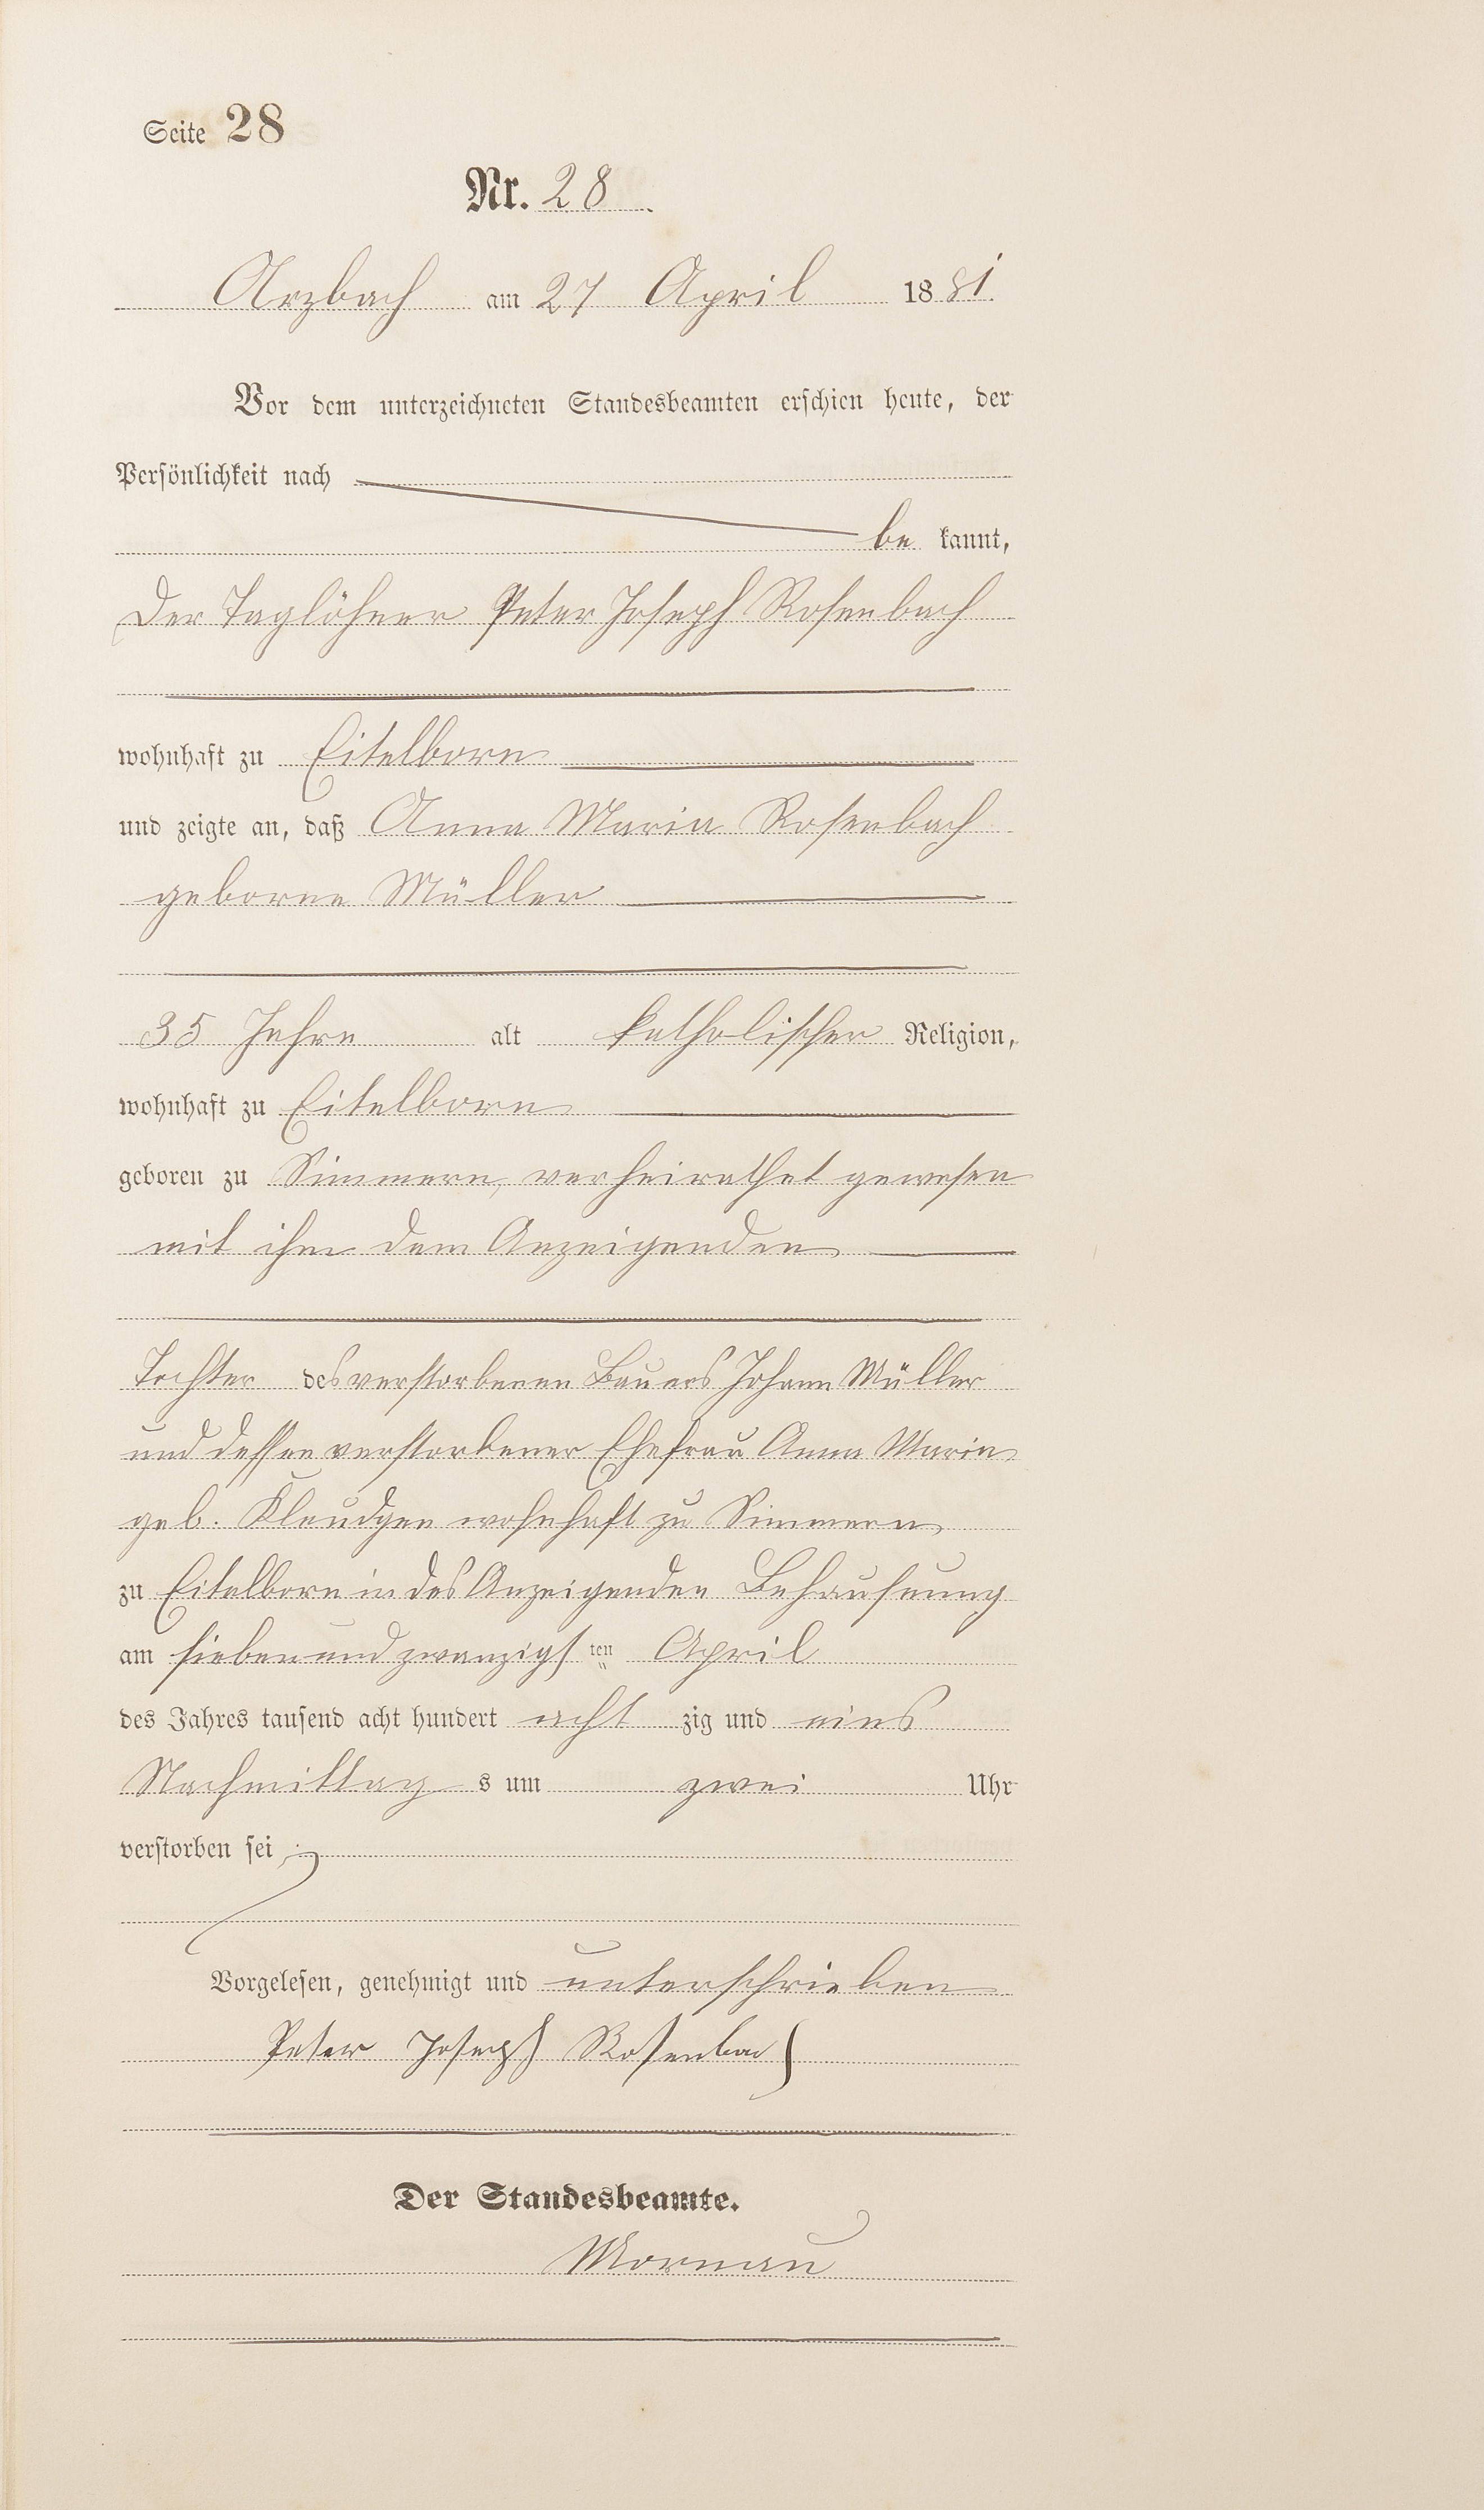 Seite 28
Nr. 28
Arzbach am 27 April 1881.
Vor dem unterzeichneten Standesbeamten erschien heute, der
Persönlichkeit nach
bekannt,
Der Taglöhner Peter Joseph Rosenbach
wohnhaft zu Eitelborn
und zeigte an, daß Anna Maria Rosenbach
geborne Müller
35 Jahre alt katholischer Religion,
wohnhaft zu Eitelborn
geboren zu Simmern, verheirathet gewesen
mit ihm dem Anzeigenden
Tochter des verstorbenen Bauers Johann Müller
und dessen verstorbener Ehefrau Anna Maria
geb. Kleudgen wohnhaft zu Simmern
zu Eitelborn in des Anzeigenden Behausung
am siebenundzwanzigsten April
des Jahres tausend acht hundert achtzig und eins
Nachmittags um zwei Uhr
verstorben sei
Vorgelesen, genehmigt und unterschrieben
Peter Joseph Rosenbach
Der Standesbeamte.
Mornau